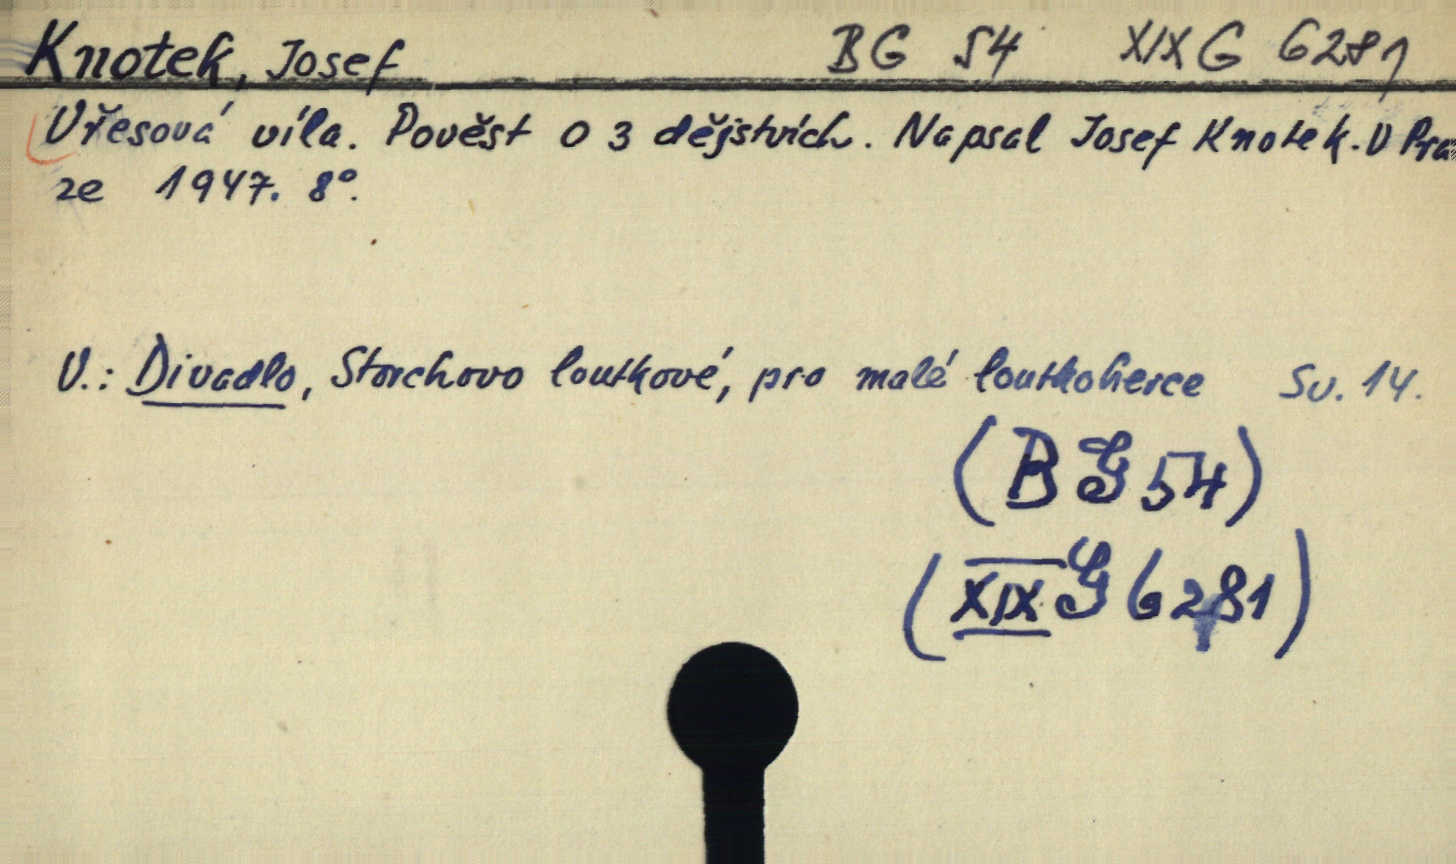 Knotek, Josef BG 54 XIX G 6281
Vřesová víla. Pověst o 3 dějstvích. Napsal Josef Knotek. V Pra
ze 1947. 8°.
V.: Divadlo, Storchovo loutkové, pro malé loutkoherce Sv. 14.
(BG 54)
(XIX G 6281)